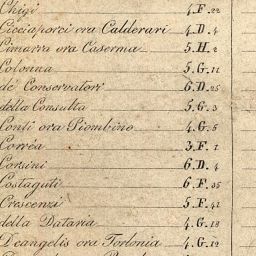 Chigi 4.F.22
Cicciaporci ora Calderari 4.D.4
Cimarra ora Caserma 5.H.2
Colonna 5.G.11
de Conservatori 6.D.25
della Consulta 5.G.3
Conti ora Piombino 4.G.5
Corréa 3.F.1
Corsini 6.D.4
Costaguti 6.F.35
Crescenzi 5.F.41
della Dataria 4.G.13
Deangelis ora Torlonia 4.G.12